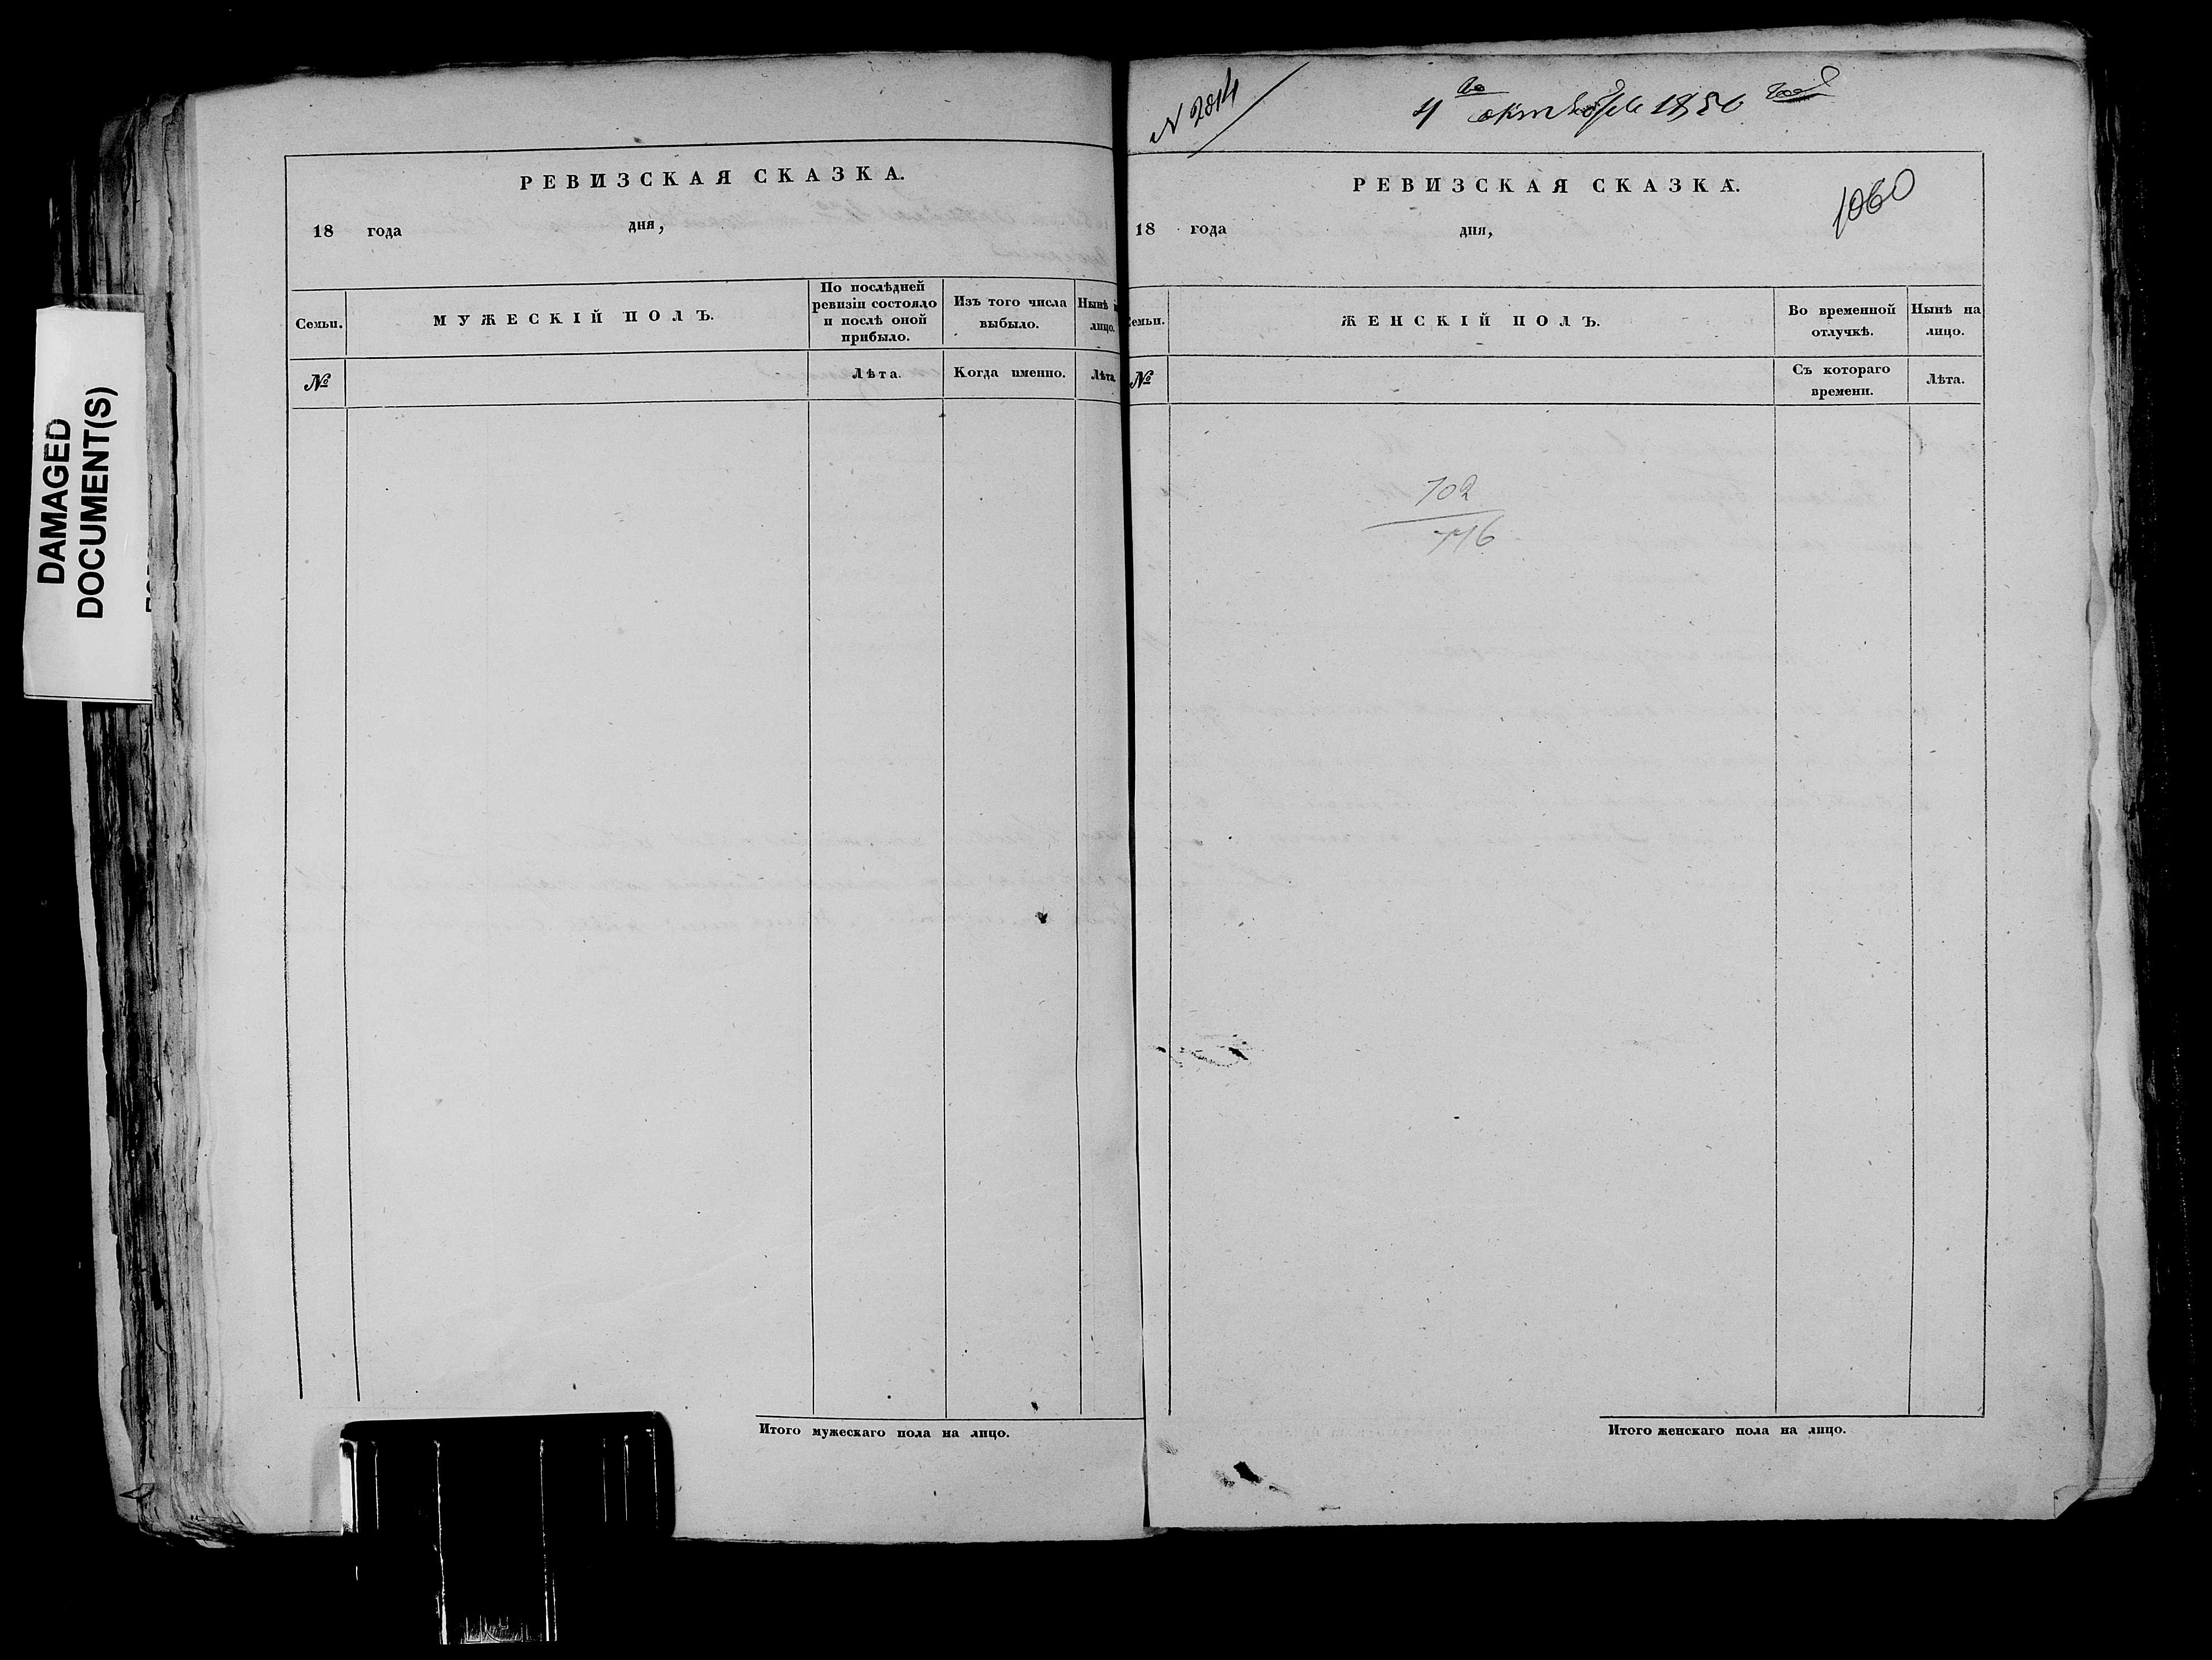 DAMAGED
DOCUMENT(S)
РЕВИЗСКАЯ СКАЗКА.
18 года дня,
Семьи.
МУЖЕСКІЙ ПОЛЪ.
По послѣдней
ревизіи состояло
и послѣ оной
прибыло.
Изъ того числа
выбыло.
Нынѣ
лицо.
№
Лѣта.
Когда именно.
Лѣта.
Итого мужескаго пола на лицо.
N 2814
4го октября 1850 года
РЕВИЗСКАЯ СКАЗКА.
1060
18 года дня,
Семьи.
ЖЕНСКІЙ ПОЛЪ.
Во временной
отлучкѣ.
Нынѣ на
лицо.
№
Съ котораго
времени.
Лѣта.
702
Итого женскаго пола на лицо.